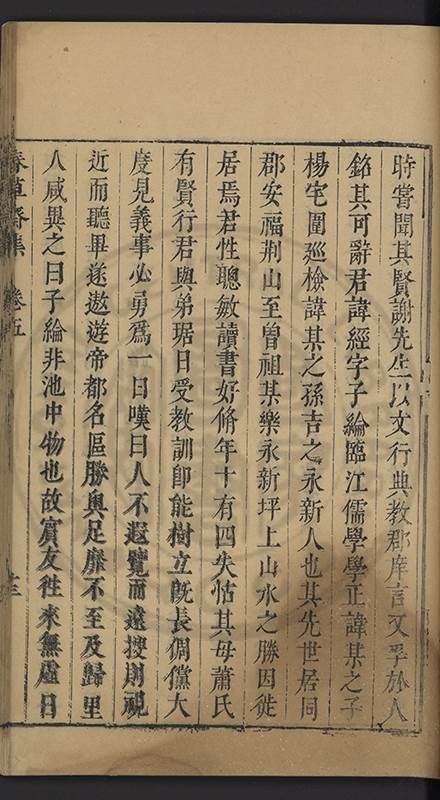 時嘗聞其賢謝先生以文行典教郡庠言文孚於人
銘其可辭君諱經字子綸臨江儒學學正諱某之子
楊宅圍巡檢諱某之孫吉之永新人也其先世居同
郡安福荆山至曽祖某樂永新坪上山水之勝因徙
居焉君性聰敏讀書好脩年十有四失怙其母蕭氏
有賢行君與弟琚日受教訓卽能樹立旣長倜儻大
度見義事必勇爲一日嘆曰人不遐覽而遠搜則視
近而聽卑遂遨遊帝都名區勝輿足靡不至及歸里
人咸異之曰子綸非池中物也故賓友徃來無虛日
春草齋集 卷五 十三